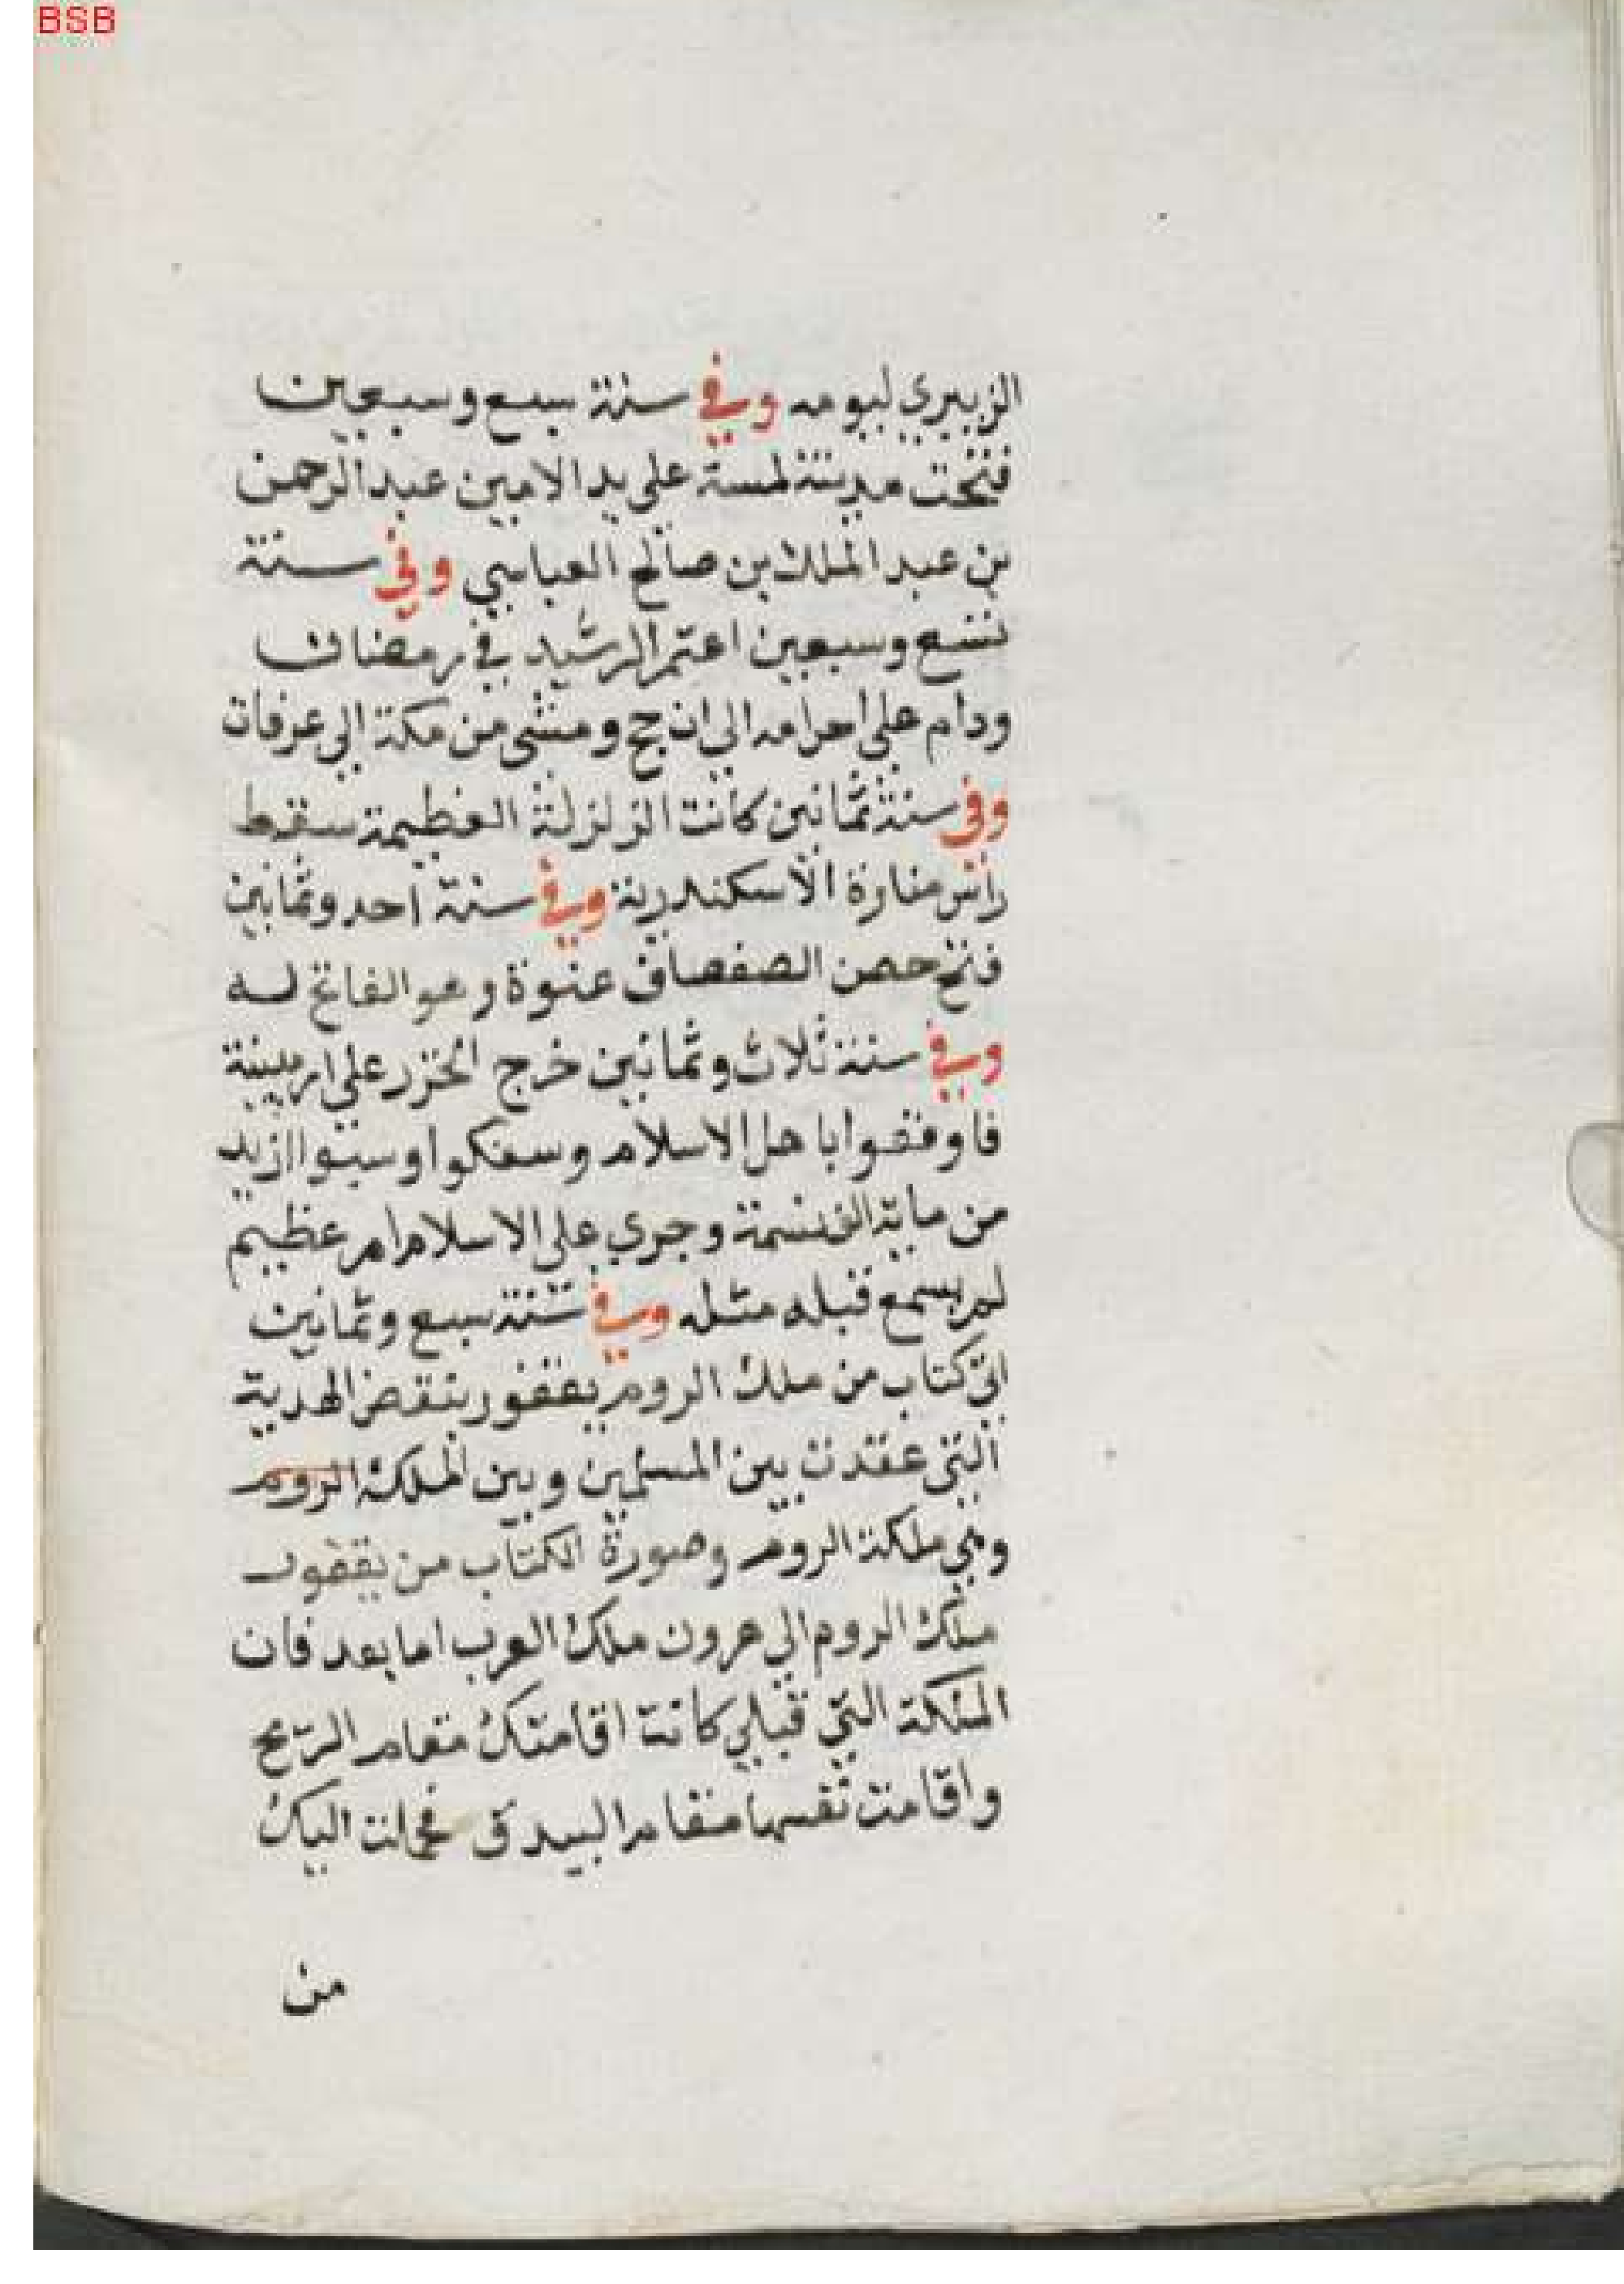 BSB
الزبيري ليومه وفي سنة سبع وسبعين
فتحت مدينة لمسة على يد الامين عبد الرحمن
بن عبد الملك بن صالح العباسي وفي سنة
تسع وسبعين اعتمر الرشيد في رمضان
ودام على احرامه الى ان حج ومشى من مكة الى عرفات
وفي سنة ثمانين كانت الزلزلة العظيمة سقط
راس منارة الاسكندرية وفي سنة احد وثمانين
فتح حصن الصفصاف عنوة وهو الفاتح له
وفي سنة ثلاث وثمانين خرج الخزر على ارمينية
فاوقعوا باهل الاسلام وسفكوا وسبوا ازيد
من ماية الف نسمة وجري على الاسلام امر عظيم
لم يسمع قبله مثله وفي سنة سبع وثمانين
اتى كتاب من ملك الروم يقفور بنقض الهدية
التي عقدت بين المسلمين وبين الملكة الروم
وهي ملكة الروم وصورة الكتاب من يقفور
ملك الروم الى هرون ملك العرب اما بعد فان
الملكة التي قبلي كانت اقامتك مقام الريح
واقامت نفسها مقام البيدق فحملت اليك
من